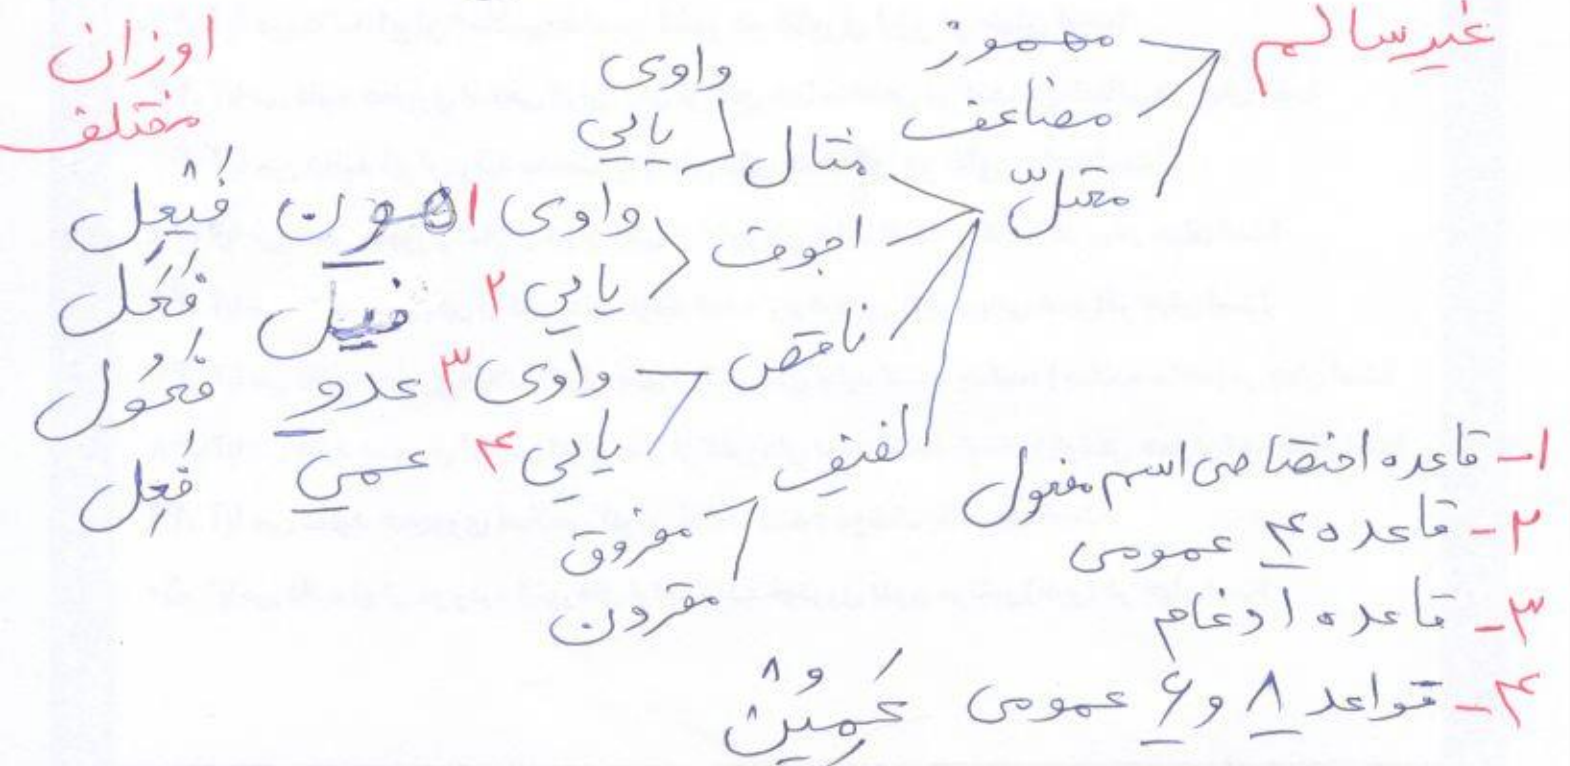 غیر سالم
مهموز
مضاعف
معتلّ
مثال
واوی
یایی
اجوف
واوی ۱ هون فَیْعِل
یایی ۲ فَعَل
ناقص
واوی ۳ عدو فَعُول
یایی ۴ عمی فَعِل
لفیف
مفروق
مقرون
اوزان
مختلف
۱- قاعده اختصاصی اسم مفعول
۲- قاعده ۴ عمومی
۳- قاعده ادغام
۴- قواعد ۸ و ۶ عمومی